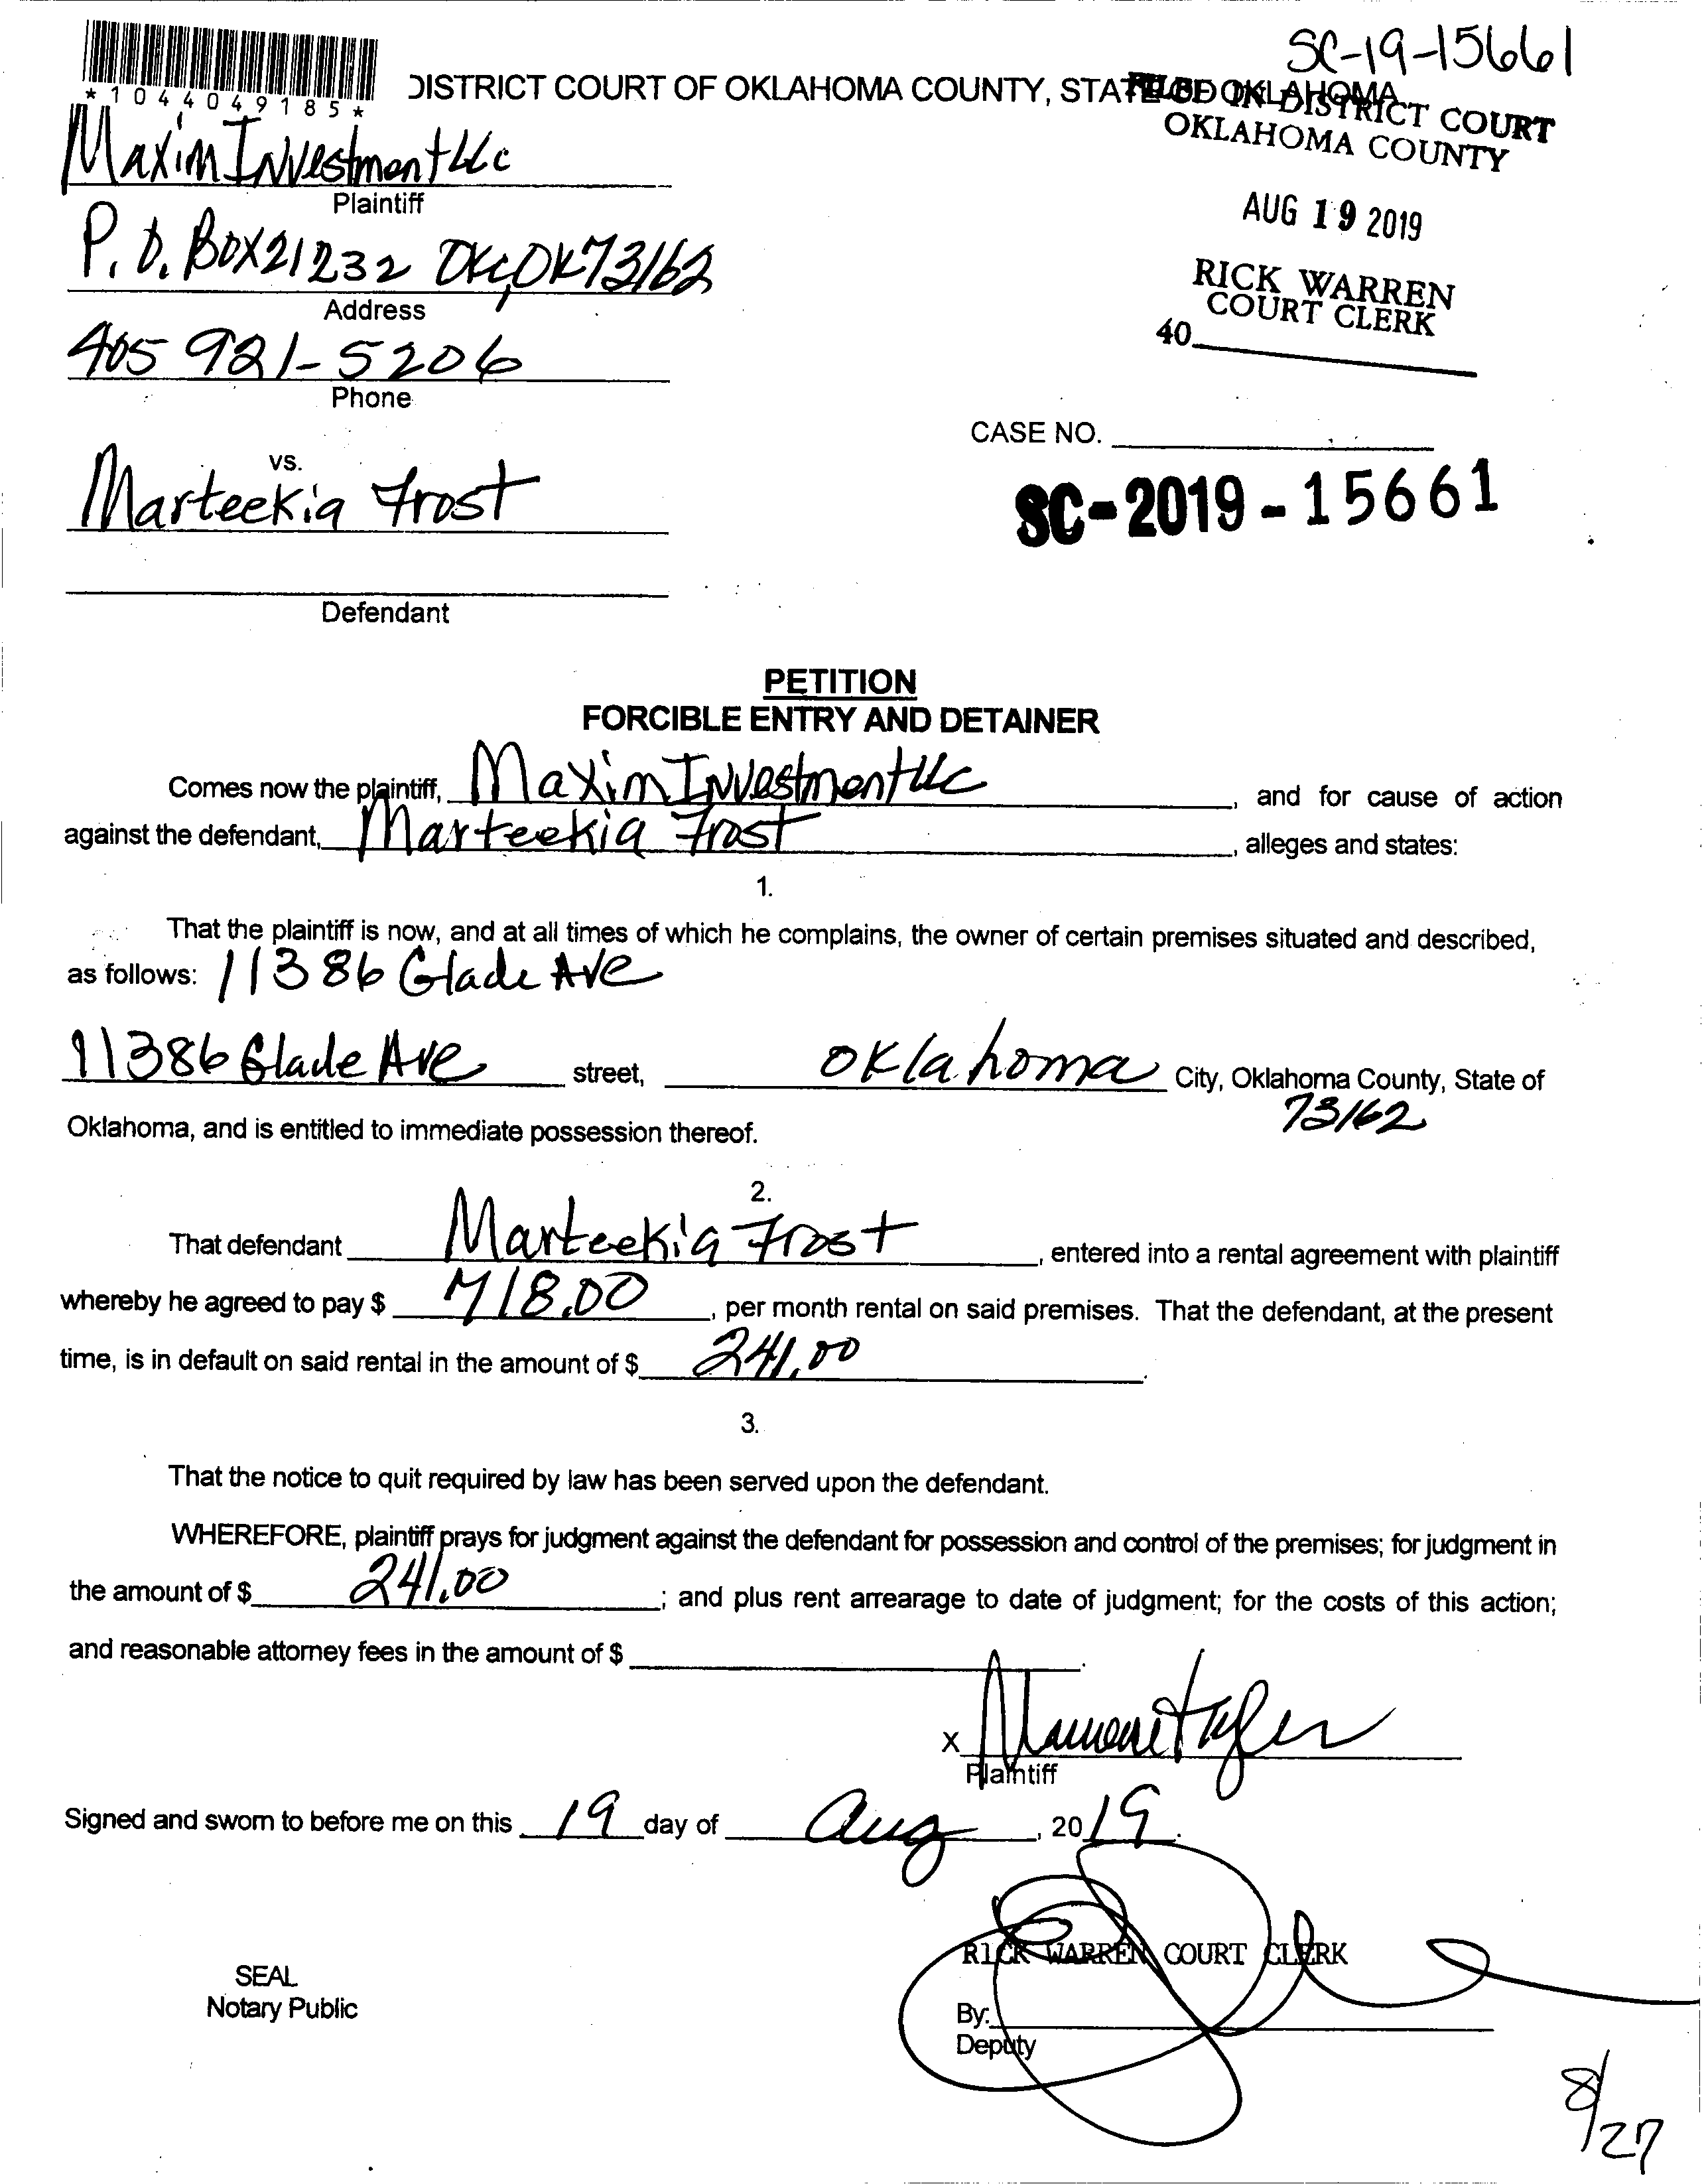 SC-19-15661
*1044049185*
DISTRICT COURT OF OKLAHOMA COUNTY, STATE OF OKLAHOMA
FILED IN DISTRICT COURT
OKLAHOMA COUNTY
Maxim Investment LLc
Plaintiff
AUG 19 2019
P.O. BOX 21232 OKC, OK 73162
Address
RICK WARREN
COURT CLERK
40
405 921-5206
Phone
CASE NO.
SC-2019-15661
vs.
Marteekia Frost
Defendant
PETITION
FORCIBLE ENTRY AND DETAINER
Comes now the plaintiff, Maxim Investment LLc, and for cause of action
against the defendant, Marteekia Frost, alleges and states:
1.
That the plaintiff is now, and at all times of which he complains, the owner of certain premises situated and described,
as follows: 11386 Glade Ave
11386 Glade Ave street, Oklahoma City, Oklahoma County, State of
73162
Oklahoma, and is entitled to immediate possession thereof.
2.
That defendant Marteekia Frost, entered into a rental agreement with plaintiff
whereby he agreed to pay $ 718.00, per month rental on said premises. That the defendant, at the present
time, is in default on said rental in the amount of $ 241.00.
3.
That the notice to quit required by law has been served upon the defendant.
WHEREFORE, plaintiff prays for judgment against the defendant for possession and control of the premises; for judgment in
the amount of $ 241.00; and plus rent arrearage to date of judgment; for the costs of this action;
and reasonable attorney fees in the amount of $ .
X
Plaintiff
Signed and sworn to before me on this 19 day of Aug, 2019.
RICK WARREN COURT CLERK
SEAL
Notary Public
By:
Deputy
8/27